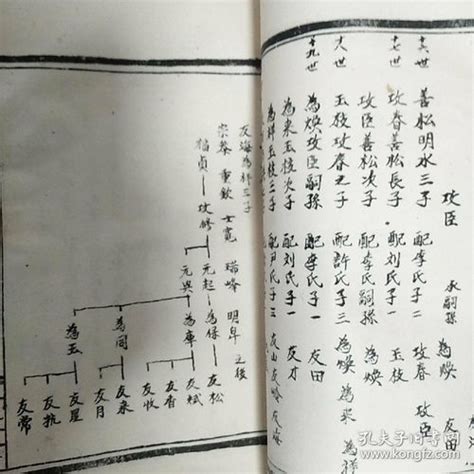 攻臣 承嗣孫 友田
十六世 善松明水三子 配李氏子二 攻春 攻臣
十七世 攻春善松長子 配刘氏子一 玉枝
攻臣善松次子 配李氏嗣孫 為煥
十八世 玉枝攻春之子 配許氏子三 為煥 為来 為祥
為煥攻臣嗣孫 配李氏子一 友田
十九世 為来玉枝次子 配刘氏子一 友才
為祥玉枝三子 配尹氏子三 友山 友嶺 友海
友海為祥三子
宗琴 重欽 士寬 瑞峰 明阜 之後
福貞 攻修
元起 為保 友松
元興 為庫 友斌
友香
友收
為同 友来
友月
為玉 友星
友抗
友常
孔夫子旧书网
www.kongfz.com